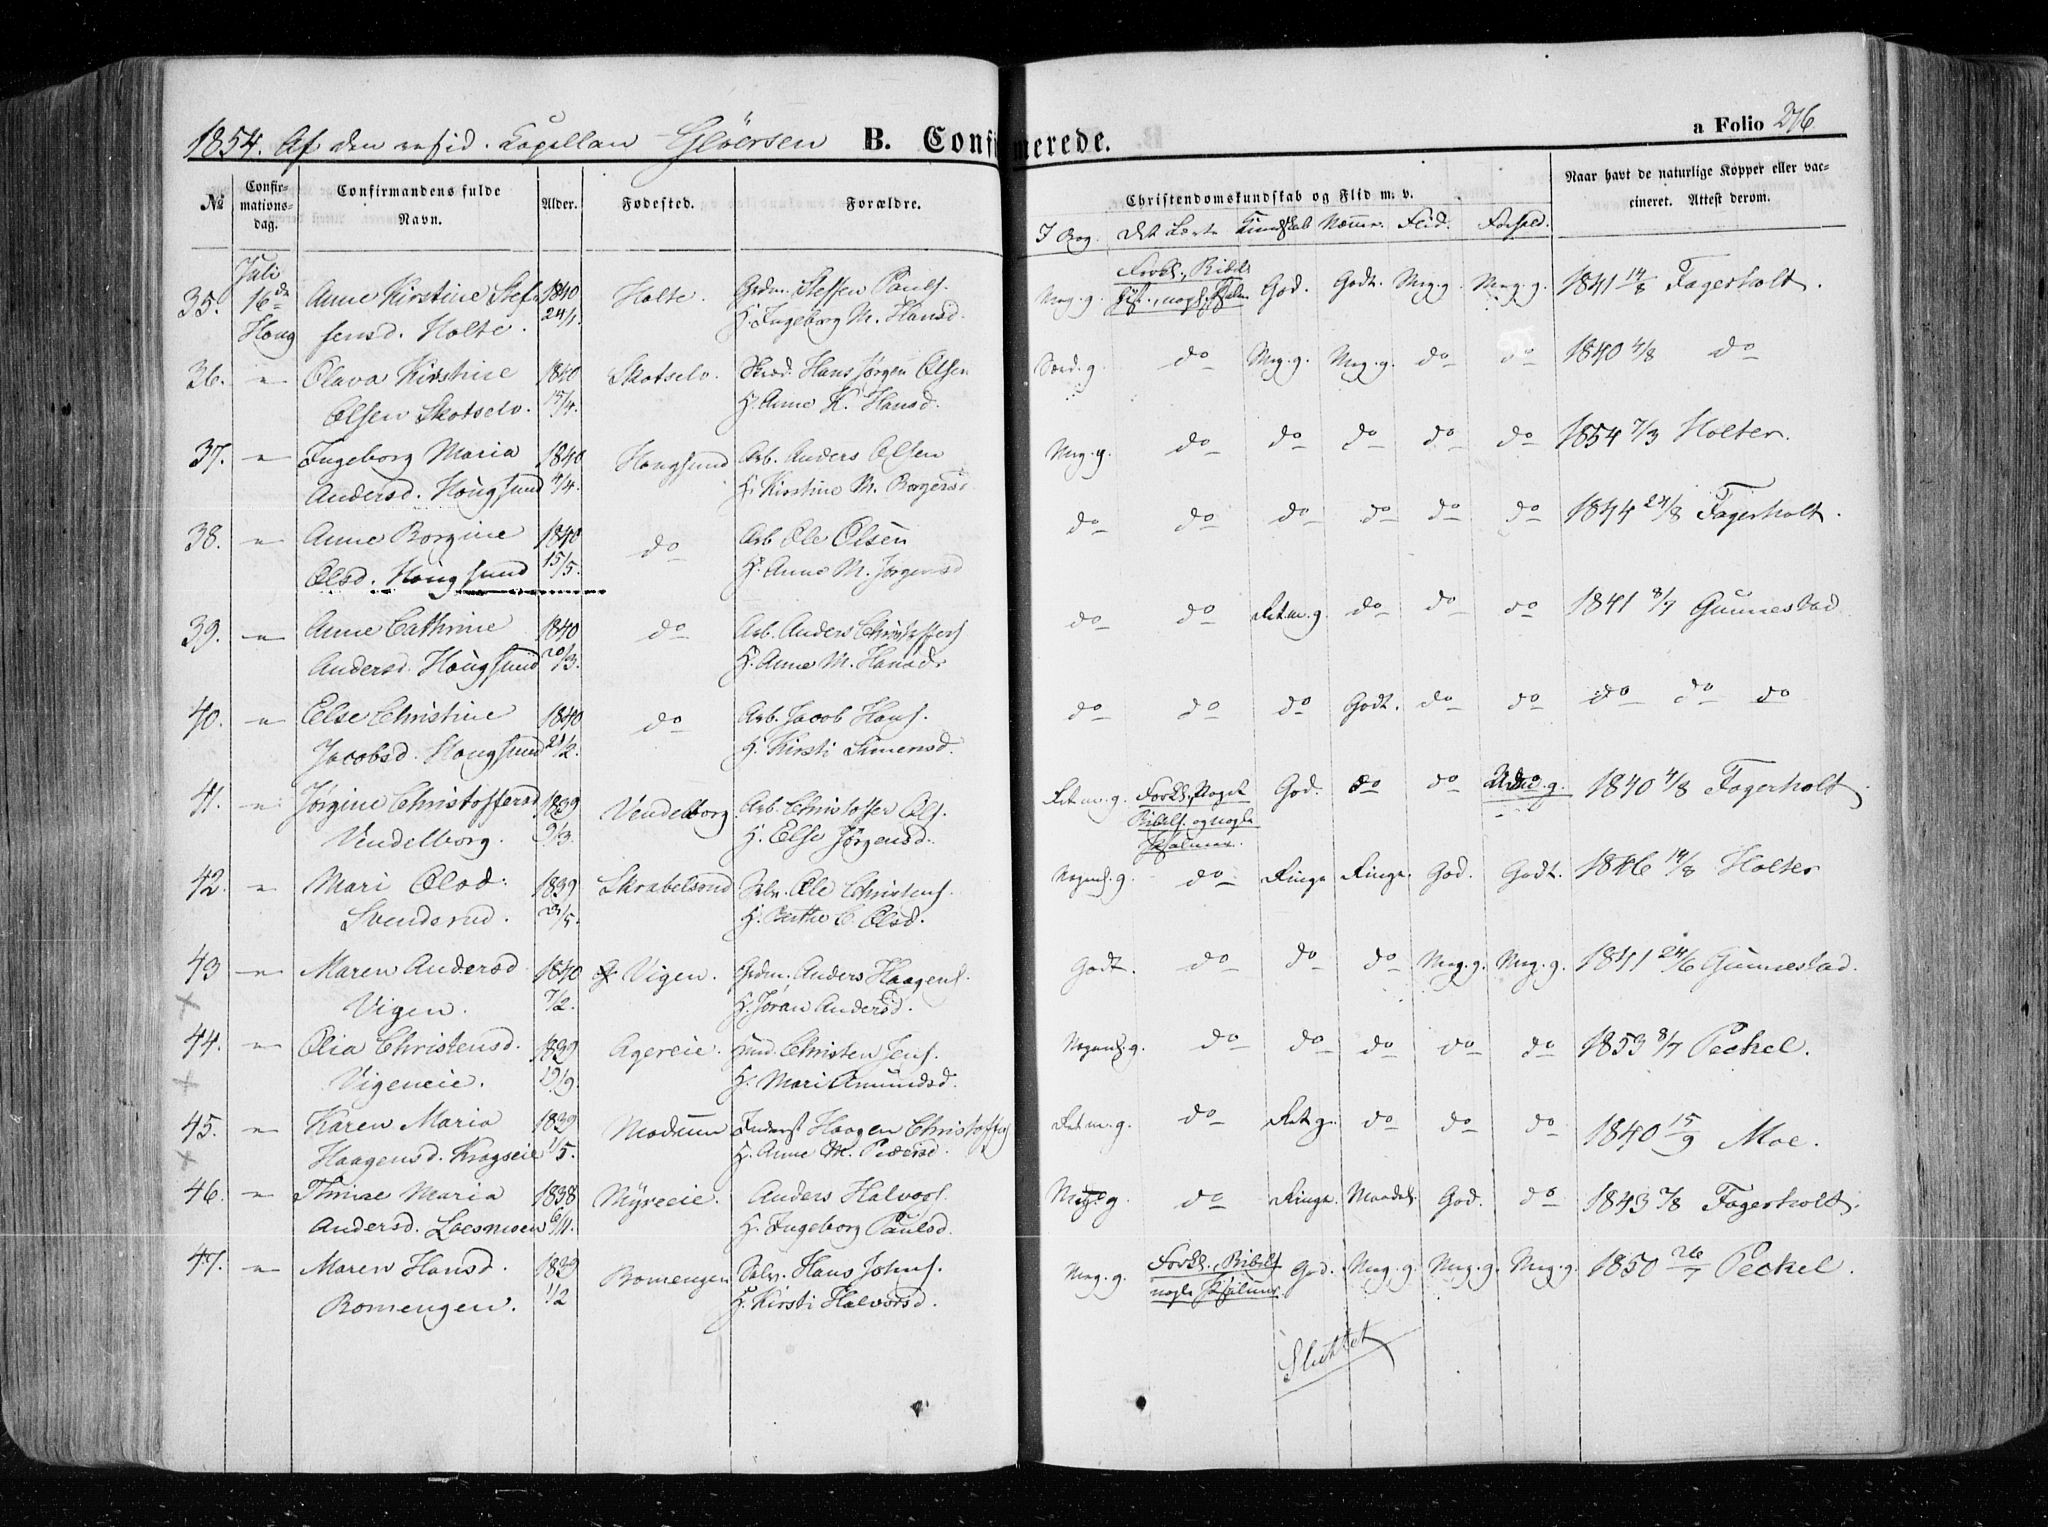 1854. Af den resid. Capellan Gløersen B. Confirmerede. a Folio 276
No Confirmationsdag. Confirmandens fulde Navn. Alder. Fødested. Forældre. Christendomskundskab og Flid m. v. Naar havt de naturlige Kopper eller vaccineret. Attest derom.
I Bog. Det Lærte Kundskab Nemme. Flid. Forhold.
35. Juli 16de Houg Anne Kirstine Stef- 1840 Holte. Grdm. Steffen Pauls. Meg. g. Forkl., Bibels God. Godt. Meg. g. Meg. g. 1841 14/8 Fagerholt.
fensd. Holte. 24/1. H. Ingeborg M. Hansd.
36. " Olava Kirstine 1840 Skotselv. Hans Jørgen Olsen g. do Meg. g. Meg. g. do do 1840 4/8 do
Olsen Skotselv. 15/4. H. Anne K. Hansd.
37. " Ingeborg Maria 1840 Hougsund Arb. Anders Olsen Meg. g. do do do do do 1854 7/3 Holter.
Andersd. Hougsund 4/4. H. Kirstine M. Borgersd
38. " Anne Borgine 1840 do Arb Ole Olsen do do do do do do 1844 24/8 Fagerholt.
Olsd. Hougsund 15/5. H. Anne M. Jørgensd
39. " Anne Cathrine 1840 do Arb. Anders Christoffers do do Ret m. g do do do 1841 8/7 Gunnestad
Andersd. Hougsund 20/3. H. Anne M. Hansdr
40. " Else Christine 1840 do Arb. Jacob Hans. do do do Godt. do do do do do
Jacobsd. Hougsund 21/2. H. Kirsti Simensd.
41. " Jørgine Christoffersd 1839 Vendelborg Arb. Christoffer Ols. Ret m. g. Forkl., Noget God. do do g. 1840 4/8 Fagerholt
Vendelborg. 9/3. H. Else Jørgensd. Bibels. og nogle
Psalmer.
42. " Mari Olsd. 1839 Skrabelsrud Selv. Ole Christens. g. do Ringe Ringe. God. Godt. 1846 14/8 Holter
Svenderud. 23/5. H. Berthe C. Olsd.
43 " Maren Andersd 1840 Vigen. Grdm. Anders Haagens. Godt. do do do Meg. g. Meg. g. 1841 24/6 Gunnestad.
Vigen. 7/2. H. Jøran Andersd.
44. " Olia Christensd. 1839 Agereie. Christen Jens. g. do do do do do 1853 8/7 Peckel.
Vigeneie. 19/9. H. Mari Amundsd.
45. " Karen Maria 1839 Modum Inderst Haagen Christoffers Ret m. g. do Ret g. do do do 1840 15/9 Moe.
Haagensd. Kragseie 1/5. H. Anne M. Pedersd.
46. " Thrine Maria 1838 Myreeie. Anders Halvors. g do Ringe. Maadel. God. do 1843 7/8 Fagerholt.
Andersd. Loesmoen 6/11. H. Ingeborg Paulsd.
47. " Maren Hansd. 1839 Romengen Selv. Hans Johns. Meg. g. Forkl., Bibels God. Meg. g. Meg. g. Meg. g. 1850 26/7 Peckel.
Romengen. 1/2 H. Kirsti Halvorsd. nogle Psalmer.
Sluttet